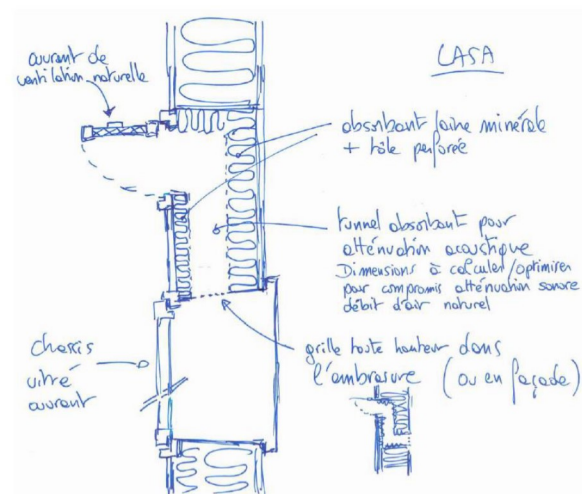 CASA
ouvrant de
ventilation naturelle
absorbant laine minérale
+ tôle perforée
tunnel absorbant pour
atténuation acoustique
Dimensions à calculer/optimiser
pour compromis atténuation sonore
débit d'air naturel
grille toute hauteur dans
l'embrasure (ou en façade)
chassis
vitré
ouvrant